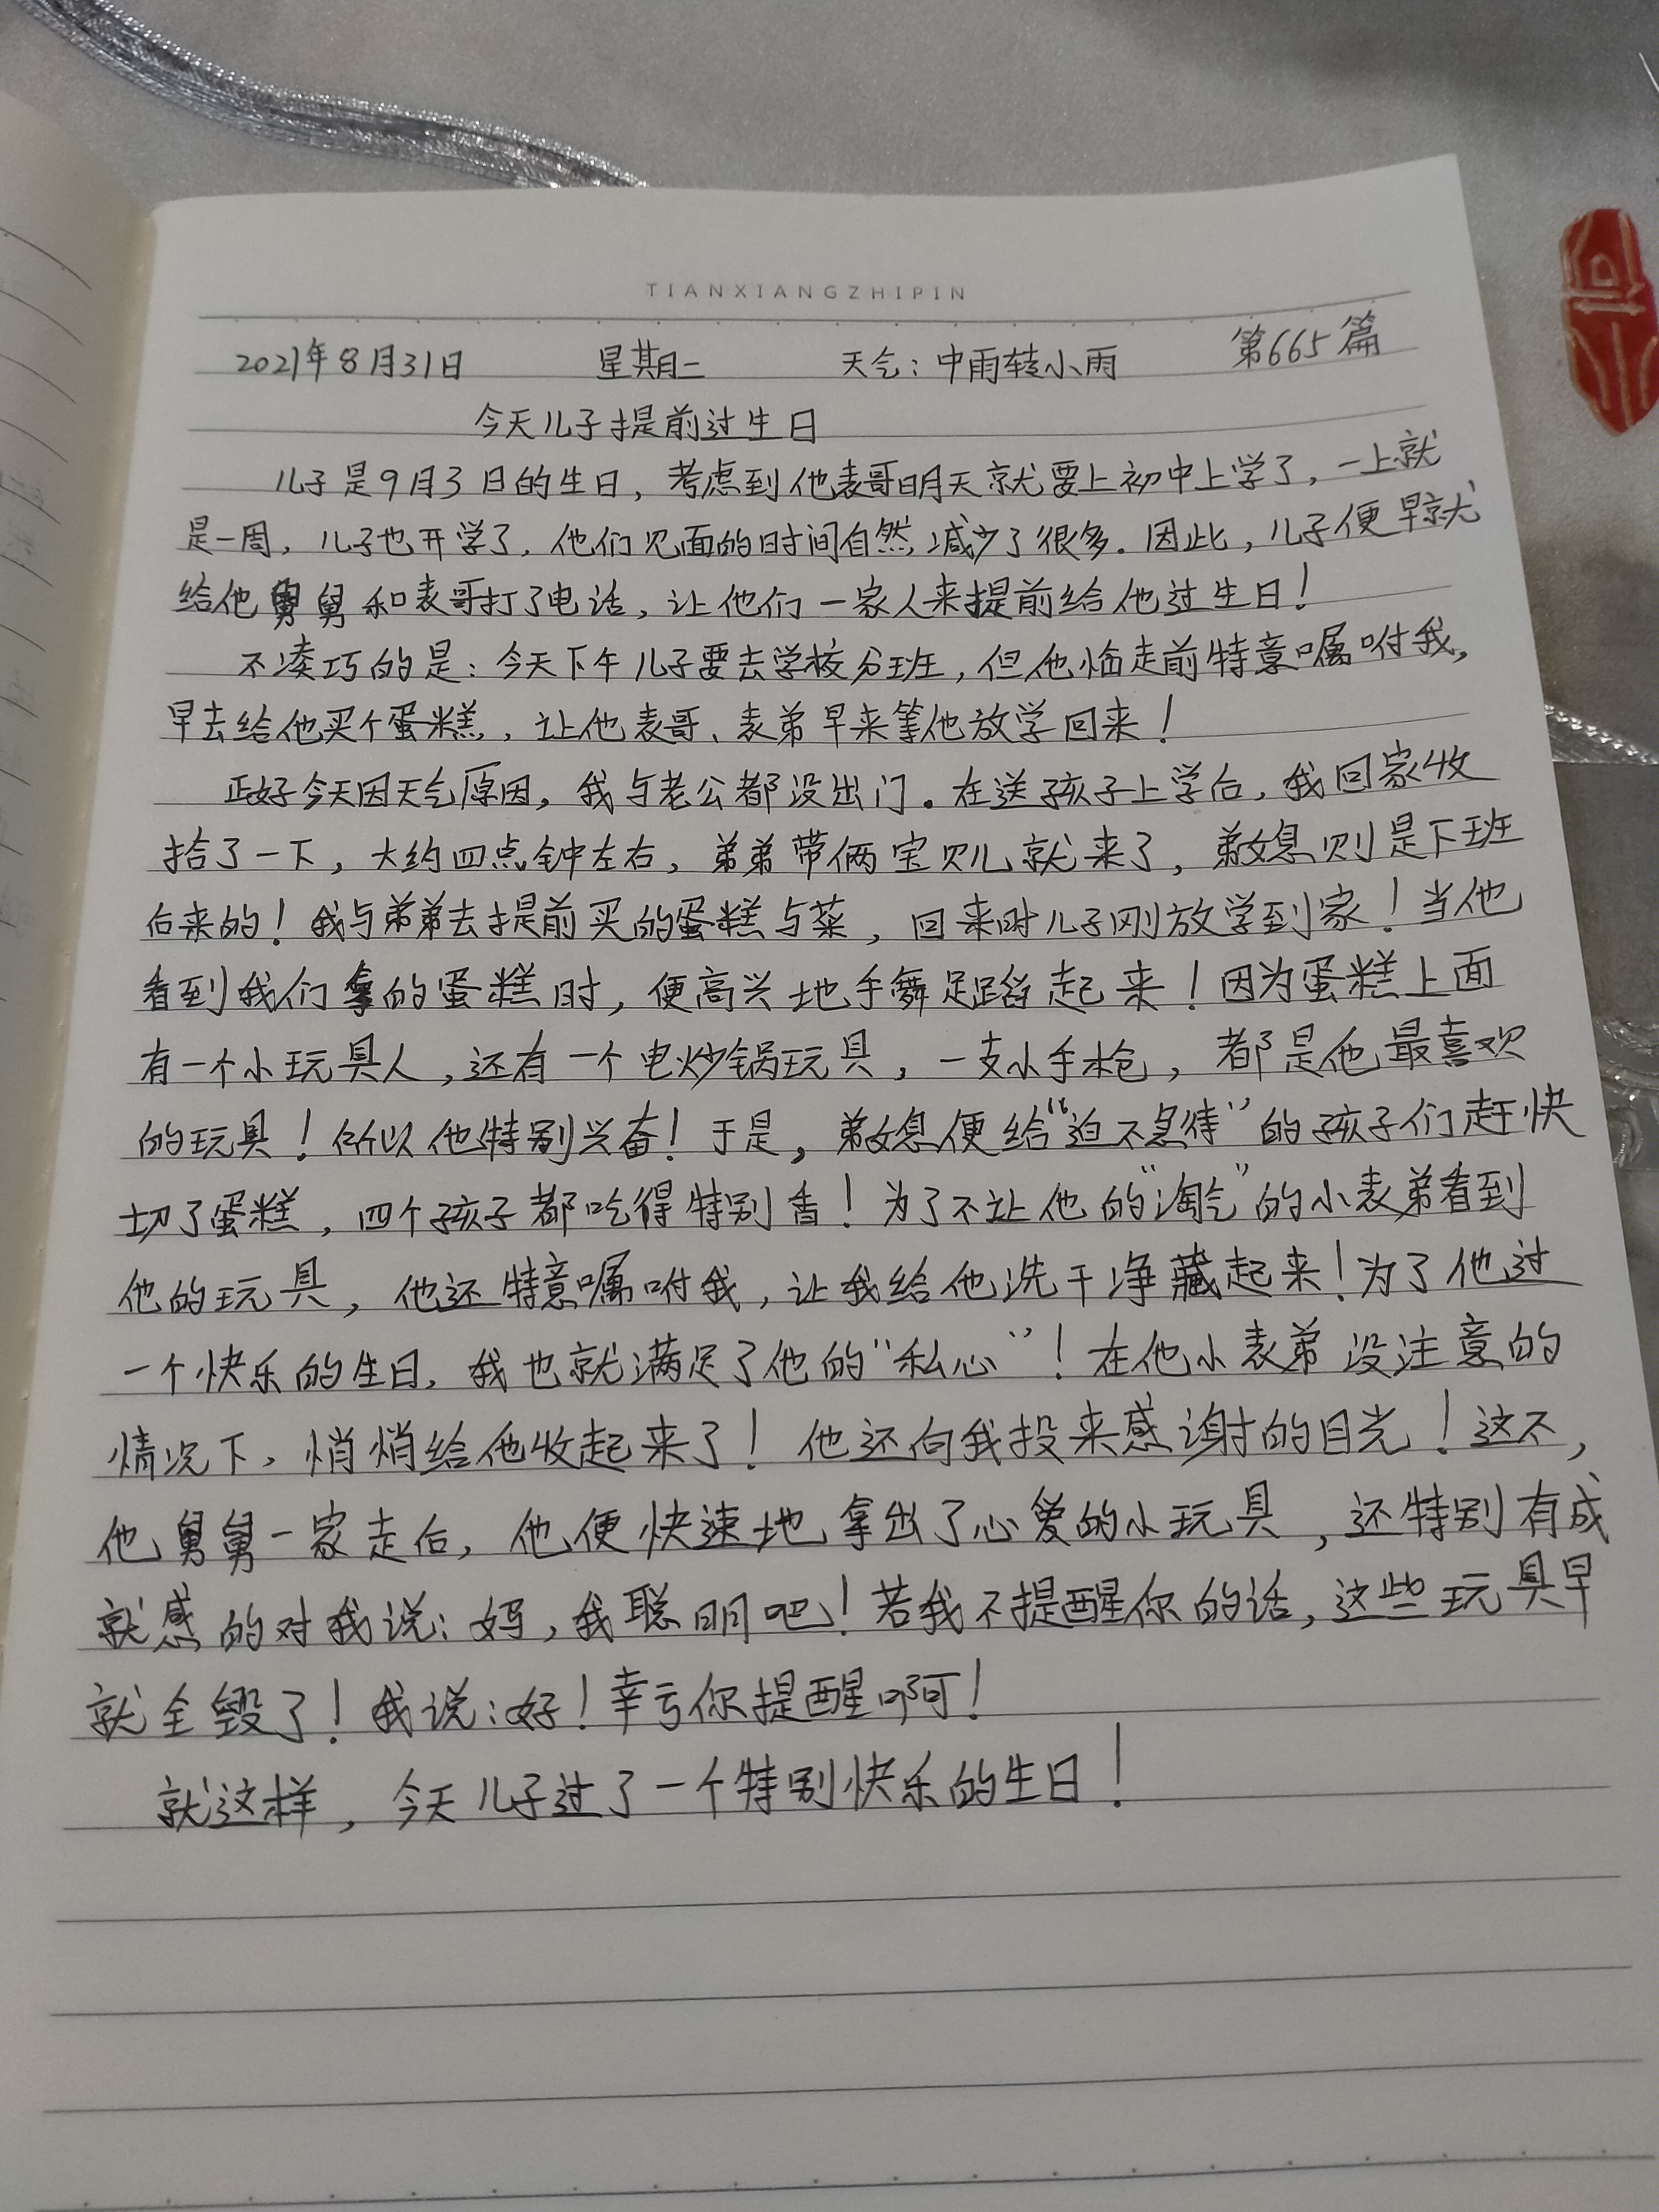 TIANXIANGZHIPIN
2021年8月31日 星期二 天气：中雨转小雨 第665篇
今天儿子提前过生日
儿子是9月3日的生日，考虑到他表哥明天就要上初中上学了，一上就
是一周，儿子也开学了，他们见面的时间自然减少了很多。因此，儿子便早就
给他舅舅和表哥打了电话，让他们一家人来提前给他过生日！
不凑巧的是：今天下午儿子要去学校分班，但他临走前特意嘱咐我，
早去给他买个蛋糕，让他表哥、表弟早来等他放学回来！
正好今天因天气原因，我与老公都没出门。在送孩子上学后，我回家收
拾了一下，大约四点钟左右，弟弟带俩宝贝儿就来了，弟媳则是下班
后来的！我与弟弟去提前买的蛋糕与菜，回来时儿子刚放学到家！当他
看到我们拿的蛋糕时，便高兴地手舞足蹈起来！因为蛋糕上面
有一个小玩具人，还有一个电炒锅玩具，一支小手枪，都是他最喜欢
的玩具！所以他特别兴奋！于是，弟媳便给“迫不急待”的孩子们赶快
切了蛋糕，四个孩子都吃得特别香！为了不让他的“淘气”的小表弟看到
他的玩具，他还特意嘱咐我，让我给他洗干净藏起来！为了他过
一个快乐的生日，我也就满足了他的“私心”！在他小表弟没注意的
情况下，悄悄给他收起来了！他还向我投来感谢的目光！这不，
他舅舅一家走后，他便快速地拿出了心爱的小玩具，还特别有成
就感的对我说：妈，我聪明吧！若我不提醒你的话，这些玩具早
就全毁了！我说：好！幸亏你提醒啊！
就这样，今天儿子过了一个特别快乐的生日！